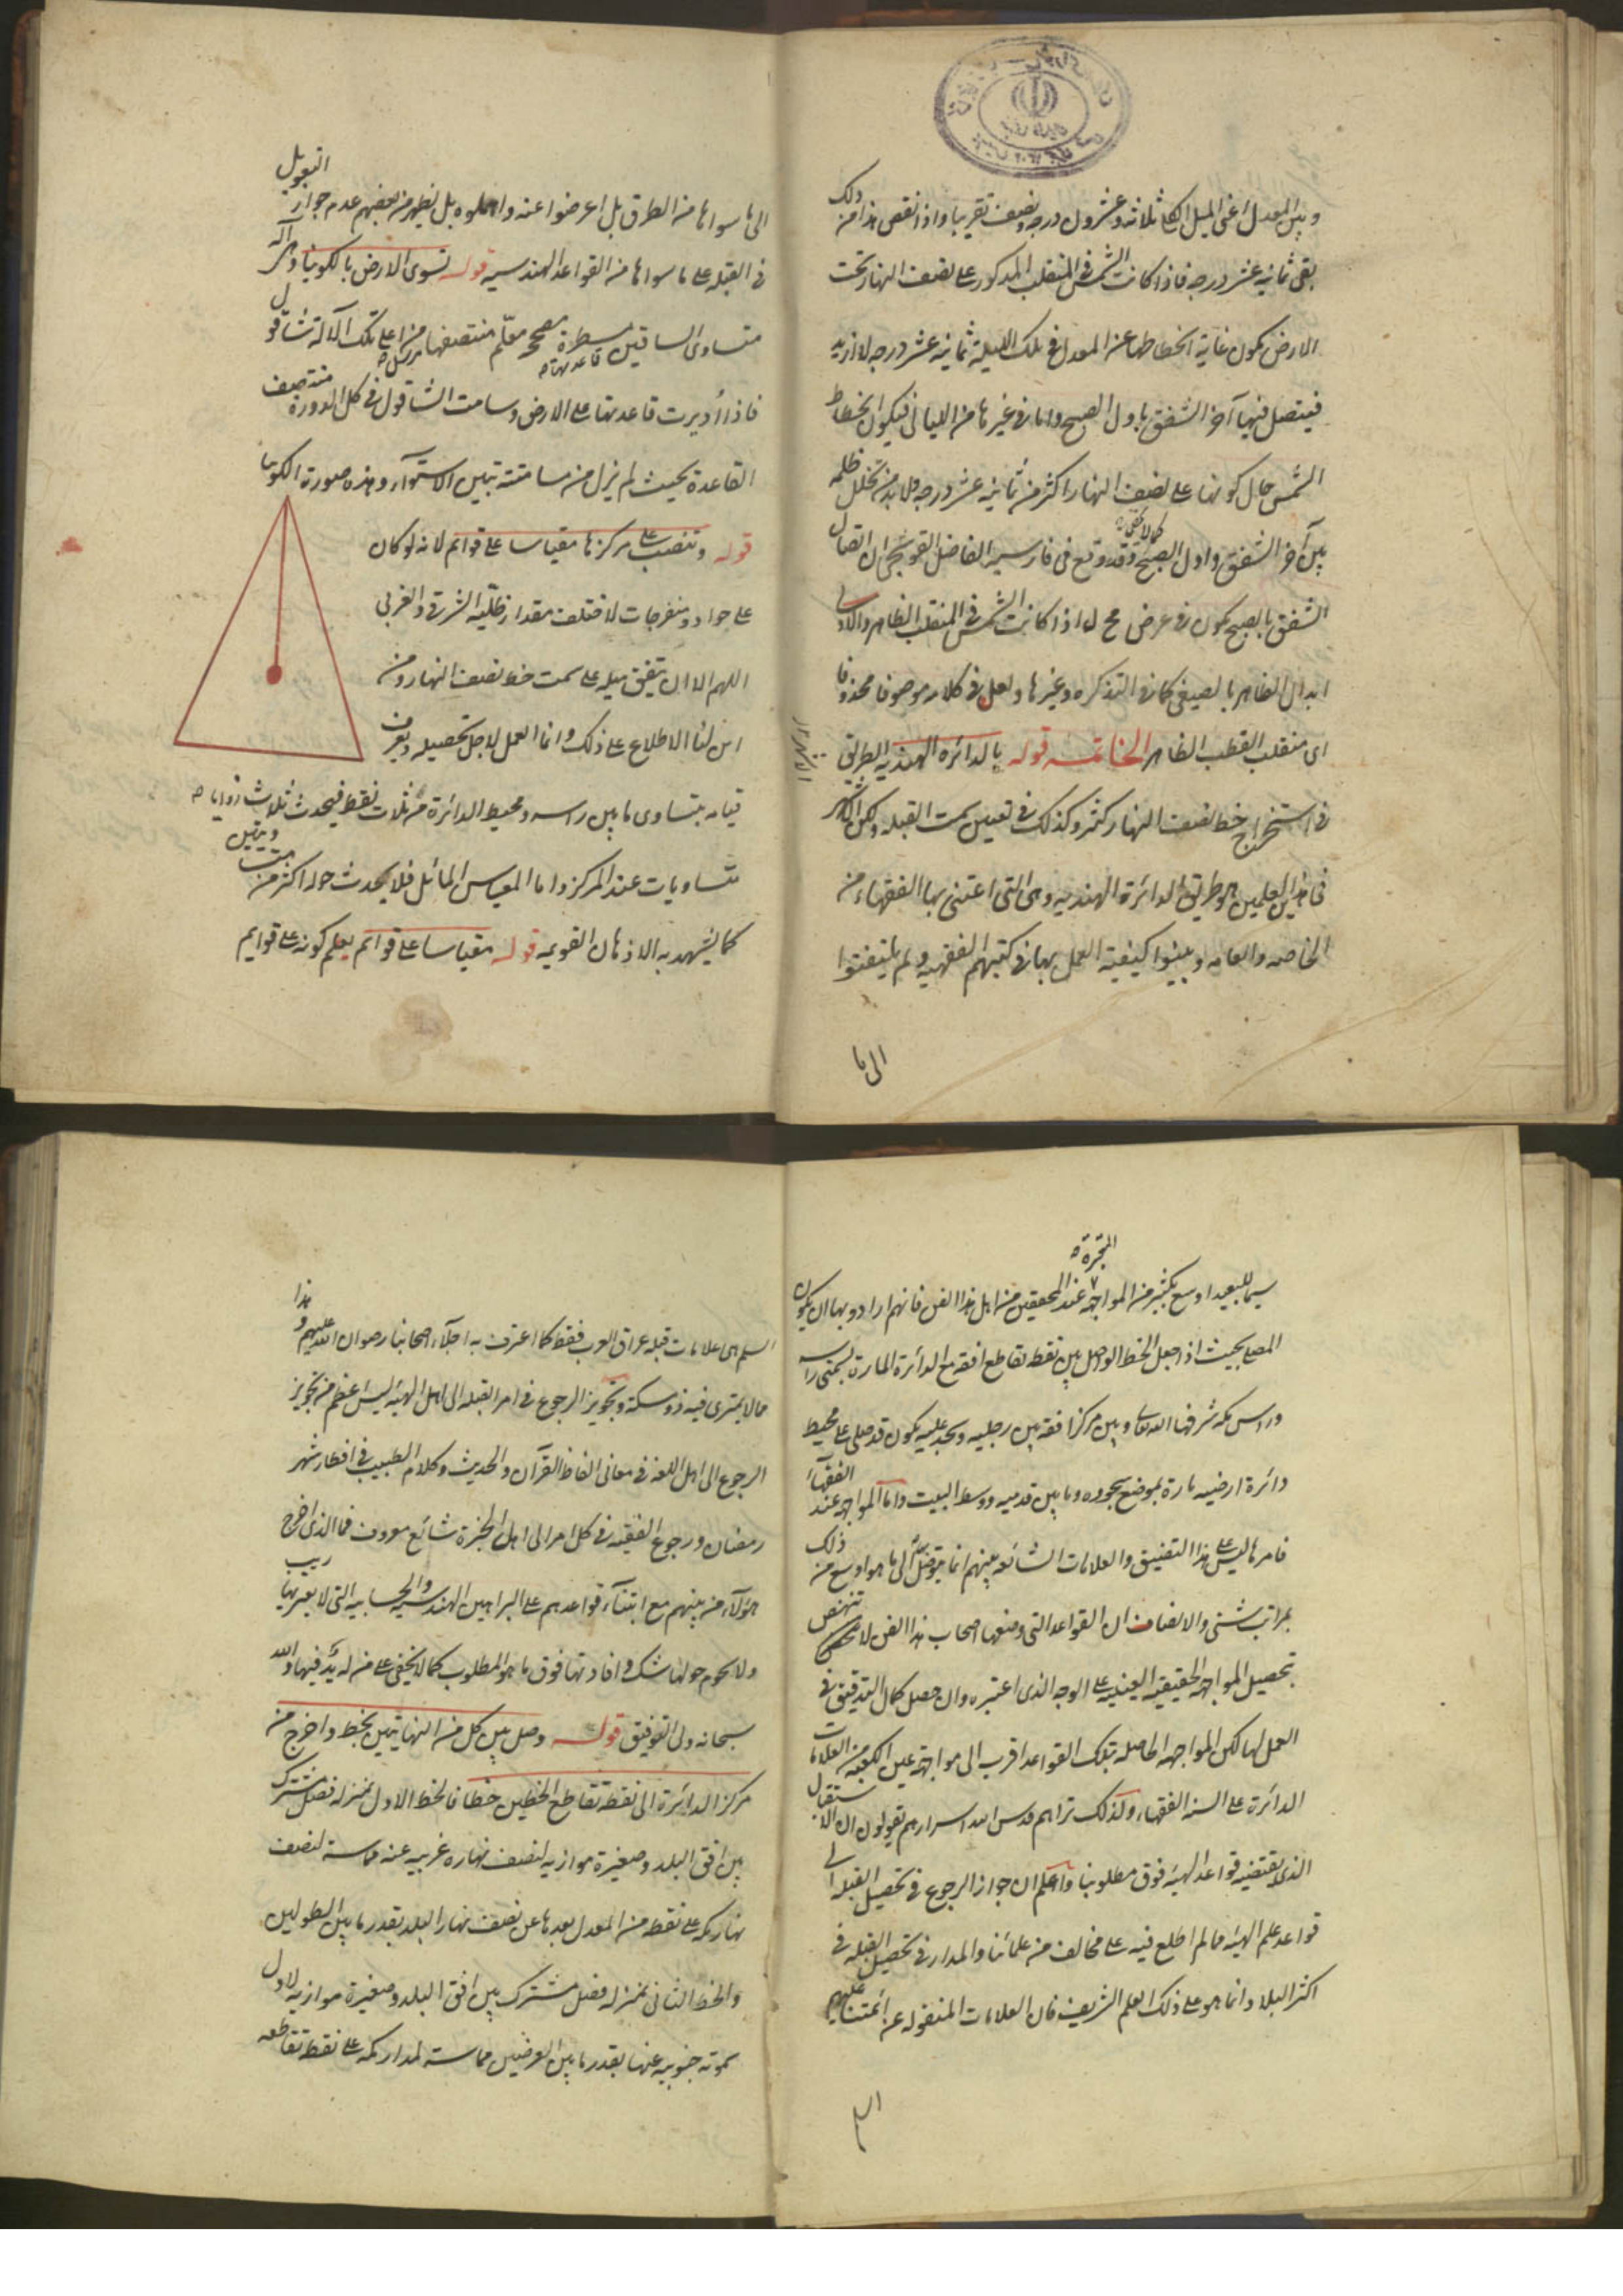 وبين المعدل اعنى الميل الكلى ثلاثة وعشرون درجه ونصف تقريبا واذا نقص هذا من ذلك
بقى ثمانية عشر درجه فاذا كانت الشمس فى المنقلب المذكور على نصف النهار تحت
الارض يكون غاية انحطاطها عن المعدل فى تلك الليلة ثمانيه عشر درجه لا ازيد
فيتصل فيها آخر الشفق باول الصبح واما فى غيرها من الليالى فيكون انحطاط
الشمس حال كونها على نصف النهار اكثر من ثمانيه عشر درجه فلا بد من تخلل ظلمه
بين آخر الشفق واول الصبح كما لا يخفى وقد وقع فى فارسية الفاضل القوشجى ان اتصال
الشفق بالصبح يكون فى عرض مح ل اذا كانت الشمس فى المنقلب الظاهر والاولى
ابدال الظاهر بالصيفى كما فى التذكره وغيرها ولعل فى كلامه موصوفا محذوفا
اى منقلب القطب الظاهر الخاتمة قوله بالدائره الهنديه الطرق
فى استخراج خط نصف النهار كثيره وكذلك فى تعيين سمت القبله ولكن الاشهر
فى هذين العلمين هو طريق الدائرة الهنديه وهى التى اعتنى بها الفقهاء من
الخاصه والعامه وبينوا كيفيه العمل بها فى كتبهم الفقهيه ولم يلتفتوا
الى ما
الى ما سواها من الطرق بل اعرضوا عنه واهملوه بل يظهر من بعضهم عدم جواز التعويل
فى القبله على ما سواها من القواعد الهندسيه قوله تسوى الارض بالكونيا وهى آله
متساوى الساقين مسطرة قاعدتها مصحح معلّم منتصفها مرسل من اعلى تلك الآلة شاقول
فاذا أديرت قاعدتها على الارض وسامت الشاقول فى كل الدورة منتصف
القاعدة بحيث لم يزل من مسامتته تبين الاستوآء وهذه صورة الكونيا
قوله وتنصب على مركزها مقياسا على قوائم لانه لو كان
على حواد ومنفرجات لاختلف مقدار ظليه الشرقى والغربى
اللهم الا ان يتفق ميله على سمت خط نصف النهار ومن
اين لنا الاطلاع على ذلك وانما العمل لاجل تحصيله ويعرف
قيامه بتساوى ما بين راسه ومحيط الدائرة من ثلاث نقط فيحدث ثلاث زوايا
متساويات عند المركز واما المقياس المائل فلا يحدث حوله اكثر من
كما يشهد به الاذهان القويمه قوله مقياسا على قوائم يعلم كونه على قوايم
سيما للبعيد اوسع بكثير من المواجهة عند المحققين من اهل هذا الفن فانهم ارادوا بها ان يكون
المصلى بحيث اذا جعل الخط الواصل بين نقطه تقاطع افقه مع الدائرة المارة بسمتى راسه
وراس مكه شرفها الله تعالى وبين مركز افقه بين رجليه وسجد عليه يكون قد صلى على محيط
دائرة ارضيه مارة بموضع سجوده وما بين قدميه ووسط البيت واما المواجهه عند الفقهآء
فامرها ليس على هذا التضييق والعلامات الشائعه بينهم انما توصل الى ما هو اوسع من ذلك
بمراتب شتى والانصاف ان القواعد التى وضعها اصحاب هذا الفن لا تنهض
تحصيل المواجهه الحقيقيه العينيه على الوجه الذى اعتبره وان حصل كمال التدقيق فى
العمل لها لكن المواجهه الحاصله بتلك القواعد اقرب الى مواجهة عين الكعبه من العلامات
الدائرة على السنه الفقهاء ولذلك تراهم قدس الله اسرارهم يقولون ان الاستقبال
الذى يقتضيه قواعد الهيئه فوق مطلوبنا واعلم ان جواز الرجوع فى تحصيل القبله الى
قواعد علم الهيئه مما لم اطلع فيه على مخالف من علمائنا والمدار فى تحصيل القبله فى
اكثر البلاد انما هو على ذلك العلم الشريف فان العلامات المنقوله عن ائمتنا عليهم
السلم
السلم هى علامات قبله عراق العرب فقط كما اعترف به اجلآء اصحابنا رضوان الله عليهم وهذا
مما لا يمترى فيه ذو مسكة وتجويز الرجوع فى امر القبله الى اهل الهيئه ليس اعظم من تجويز
الرجوع الى اهل اللغه فى معانى الفاظ القرآن والحديث وكلام الطبيب فى افطار شهر
رمضان ورجوع الفقيه فى كل امر الى اهل الخبرة شائع معروف فما الذى اخرج
هؤلآء من بينهم مع ابتنآء قواعدهم على البراهين الهندسيه والحسابيه التى لا يعتريها ريب
ولا يحوم حولها شك وافادتها فوق ما هو المطلوب كما لا يخفى على من له يد فيها والله
سبحانه ولى التوفيق قوله وصل بين كل من النهايتين بخط واخرج من
مركز الدائرة الى نقطة تقاطع الخطين خطا فالخط الاول بمنزله فصل مشترك
بين افق البلد وصغيرة موازيه لنصف نهاره غربيه عنه مماسة لنصف
نهار مكه على نقطه من المعدل بعدها عن نصف نهار البلد بقدر ما بين الطولين
والخط الثانى بمنزله فصل مشترك بين افق البلد وصغيرة موازيه لاول
سموته جنوبيه عنها بقدر ما بين العرضين مماسة لمدار مكه على نقطة تقاطعه